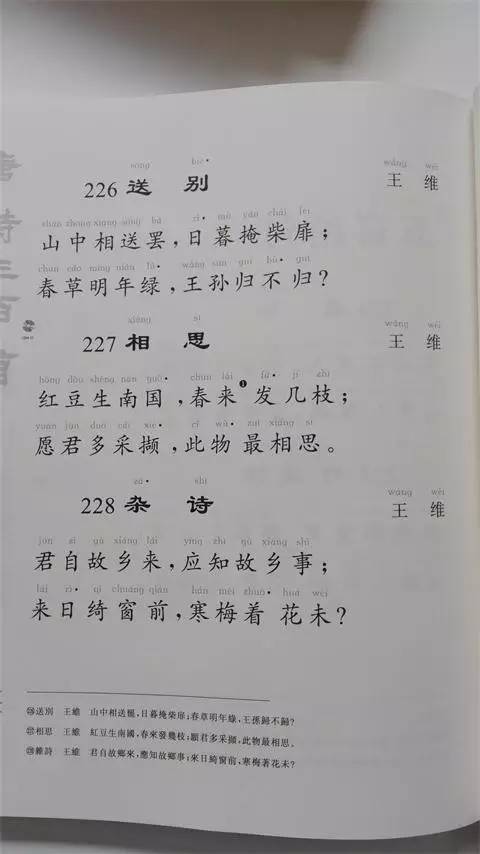 sòng bié
226 送 别 王 维
wáng wéi
shān zhōng xiāng sòng bà rì mù yǎn chái fēi
山中相送罢,日暮掩柴扉;
chūn cǎo míng nián lǜ wáng sūn guī bù guī
春草明年绿,王孙归不归?
xiāng sī wáng wéi
227 相 思 王 维
hóng dòu shēng nán guó chūn lái fā jǐ zhī
红豆生南国,春来❶发几枝;
yuàn jūn duō cǎi xié cǐ wù zuì xiāng sī
愿君多采撷,此物最相思。
zá shī wáng wéi
228 杂 诗 王 维
jūn zì gù xiāng lái yīng zhī gù xiāng shì
君自故乡来,应知故乡事;
lái rì qǐ chuāng qián hán méi zhuó huā wèi
来日绮窗前,寒梅着花未?
送別 王維 山中相送罷,日暮掩柴扉;春草明年綠,王孫歸不歸?
相思 王維 紅豆生南國,春來發幾枝;願君多采擷,此物最相思。
雜詩 王維 君自故鄉來,應知故鄉事;來日綺窗前,寒梅著花未?